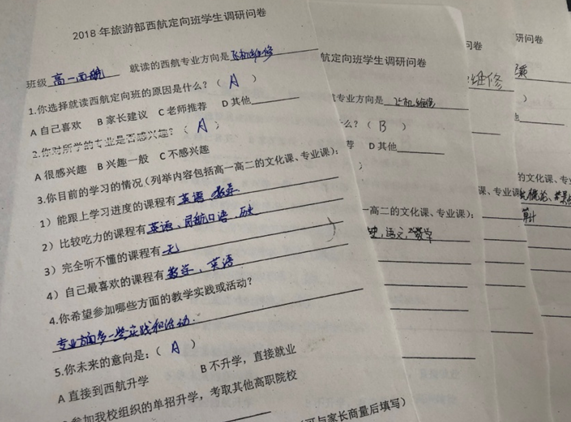 2018 年旅游部西航定向班学生调研问卷
班级 高一西航 就读的西航专业方向是 飞机维修
1.你选择就读西航定向班的原因是什么?( A )
A 自己喜欢 B 家长建议 C 老师推荐 D 其他
2.你对所学的专业是否感兴趣?( A )
A 很感兴趣 B 兴趣一般 C 不感兴趣
3.你目前的学习的情况(列举内容包括高一高二的文化课、专业课):
1)能跟上学习进度的课程有 英语 数学
2)比较吃力的课程有 英语、民航口语
3)完全听不懂的课程有 无
4)自己最喜欢的课程有 数学、英语
4.你希望参加哪些方面的教学实践或活动?
专业方面多一些实践和活动.
5.你未来的意向是:( A )
A 直接到西航升学 B 不升学,直接就业
参加我校组织的单招升学,考取其他高职院校
可与家长商量后填写)
航定向班学生调研问卷
专业方向是 飞机维修
么?( B )
荐 D 其他
一高二的文化课、专业课):
语文 数学
问卷
维修
课、专业课
问卷
)
他
的文化课、专业